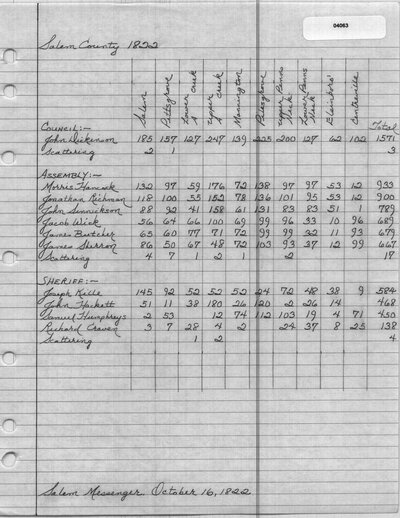 04063
Salem County 1822
Salem Pittsgrove Lower Creek Upper Creek Mannington Pilesgrove Upper Penns Neck Lower Penns Neck Elsinboro' Centreville
COUNCIL:— Total
John Dickinson 185 157 127 247 139 225 200 127 62 102 1571
Scattering 2 1 3
ASSEMBLY:—
Morris Hancock 132 97 59 176 72 138 97 97 53 12 933
Jonathan Richman 118 100 55 152 78 136 101 95 53 12 900
John Sinnickson 88 92 41 158 61 131 83 83 51 1 789
Jacob Wick 56 64 66 100 69 99 96 33 10 96 689
James Butcher 65 60 77 71 72 99 99 32 11 93 679
James Sherron 86 50 67 48 72 103 93 37 12 99 667
Scattering 4 7 1 2 1 2 17
SHERIFF:—
Joseph Kille 145 92 52 52 52 24 72 48 38 9 584
John Hackett 51 11 38 180 26 120 2 26 14 468
Samuel Humphreys 2 53 12 74 112 103 19 4 71 450
Richard Craven 3 7 28 4 2 24 37 8 25 138
Scattering 1 2 4
Salem Messenger October 16, 1822